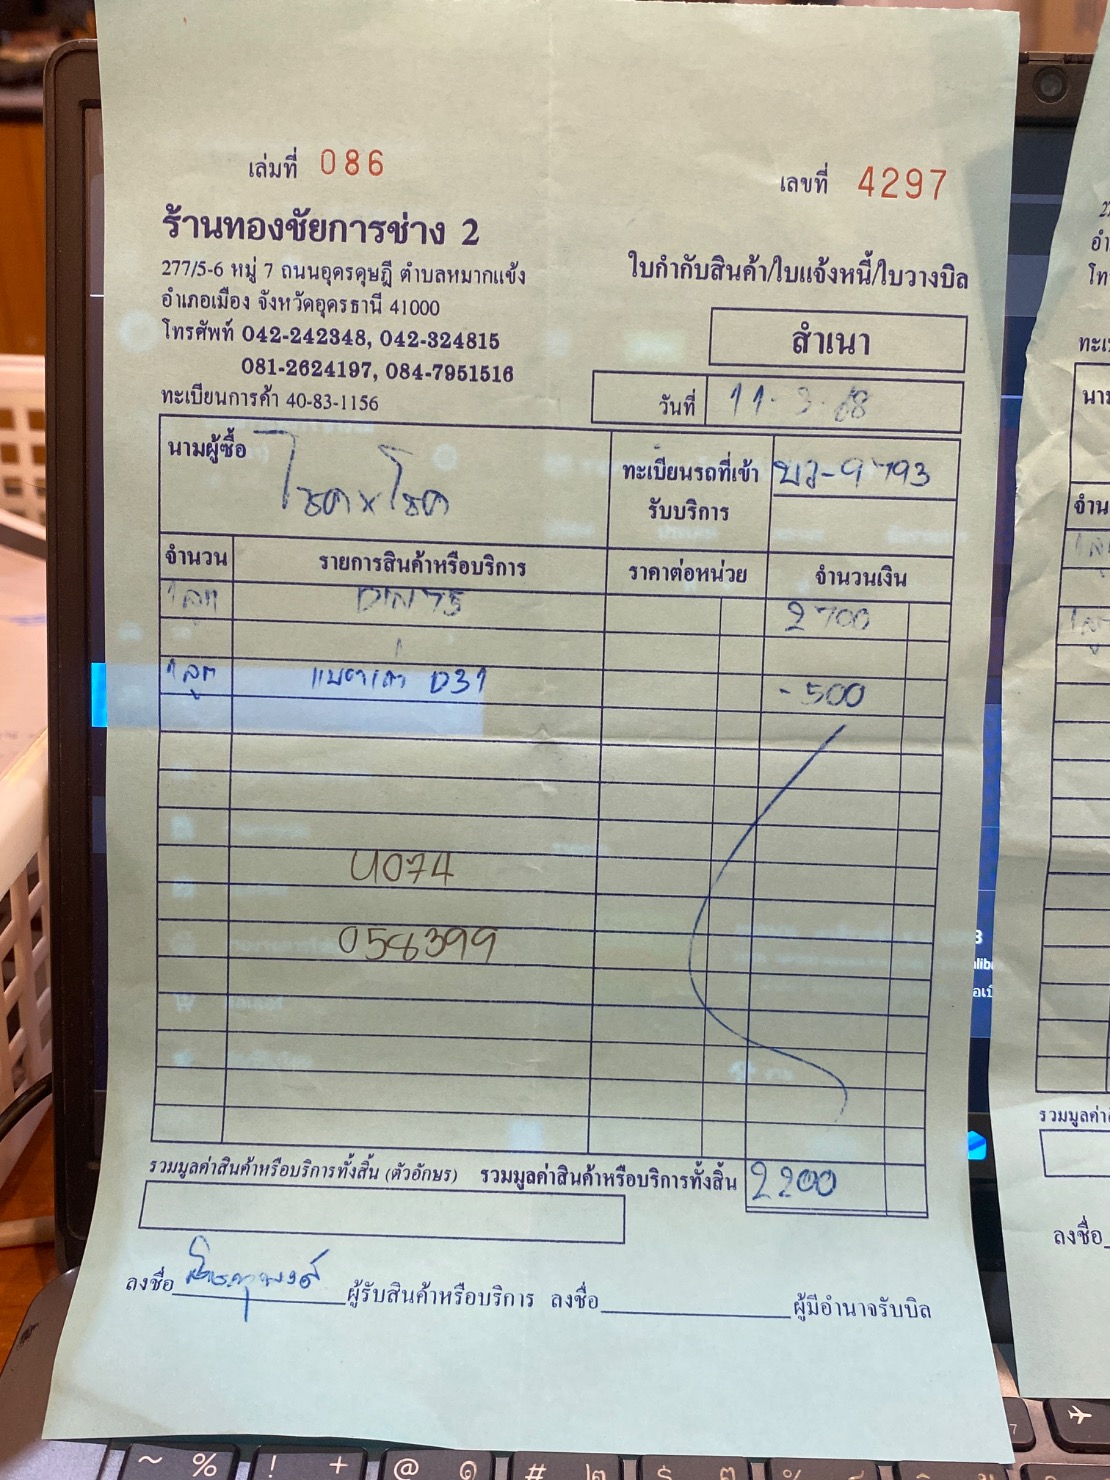 เล่มที่ 086
เลขที่ 4297
ร้านทองชัยการช่าง 2
277/5-6 หมู่ 7 ถนนอุดรดุษฎี ตำบลหมากแข้ง
อำเภอเมือง จังหวัดอุดรธานี 41000
โทรศัพท์ 042-242348, 042-324815
081-2624197, 084-7951516
ทะเบียนการค้า 40-83-1156
ใบกำกับสินค้า/ใบแจ้งหนี้/ใบวางบิล
สำเนา
วันที่ 11-3-68
นามผู้ซื้อ โชค x โชค
ทะเบียนรถที่เข้ารับบริการ บว-9793
จำนวน รายการสินค้าหรือบริการ ราคาต่อหน่วย จำนวนเงิน
1 ลูก DIN 75 2700
1 ลูก แบตเก่า D31 -500
U074
058399
รวมมูลค่าสินค้าหรือบริการทั้งสิ้น (ตัวอักษร) รวมมูลค่าสินค้าหรือบริการทั้งสิ้น 2200
ลงชื่อ ผู้รับสินค้าหรือบริการ ลงชื่อ ผู้มีอำนาจรับบิล